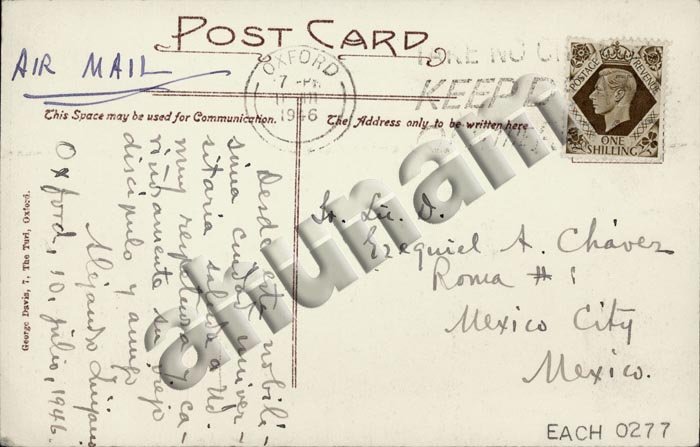 POST CARD
AIR MAIL
OXFORD
7-PM
1946
TAKE NO
KEEP D
POSTAGE REVENUE
ONE
SHILLING
This Space may be used for Communication.
The Address only to be written here
Desde esta nobilí-
sima ciudad univer-
sitaria saluda a Ud.
muy respetuosa y ca-
riñosamente su viejo
discípulo y amigo
Alejandro Quijano
Oxford, 10, julio, 1946.
Sr. Lic. D.
Ezequiel A. Chávez
Roma # 1
Mexico City
Mexico.
George Davis, 7, The Turl, Oxford.
ahunam
EACH 0277